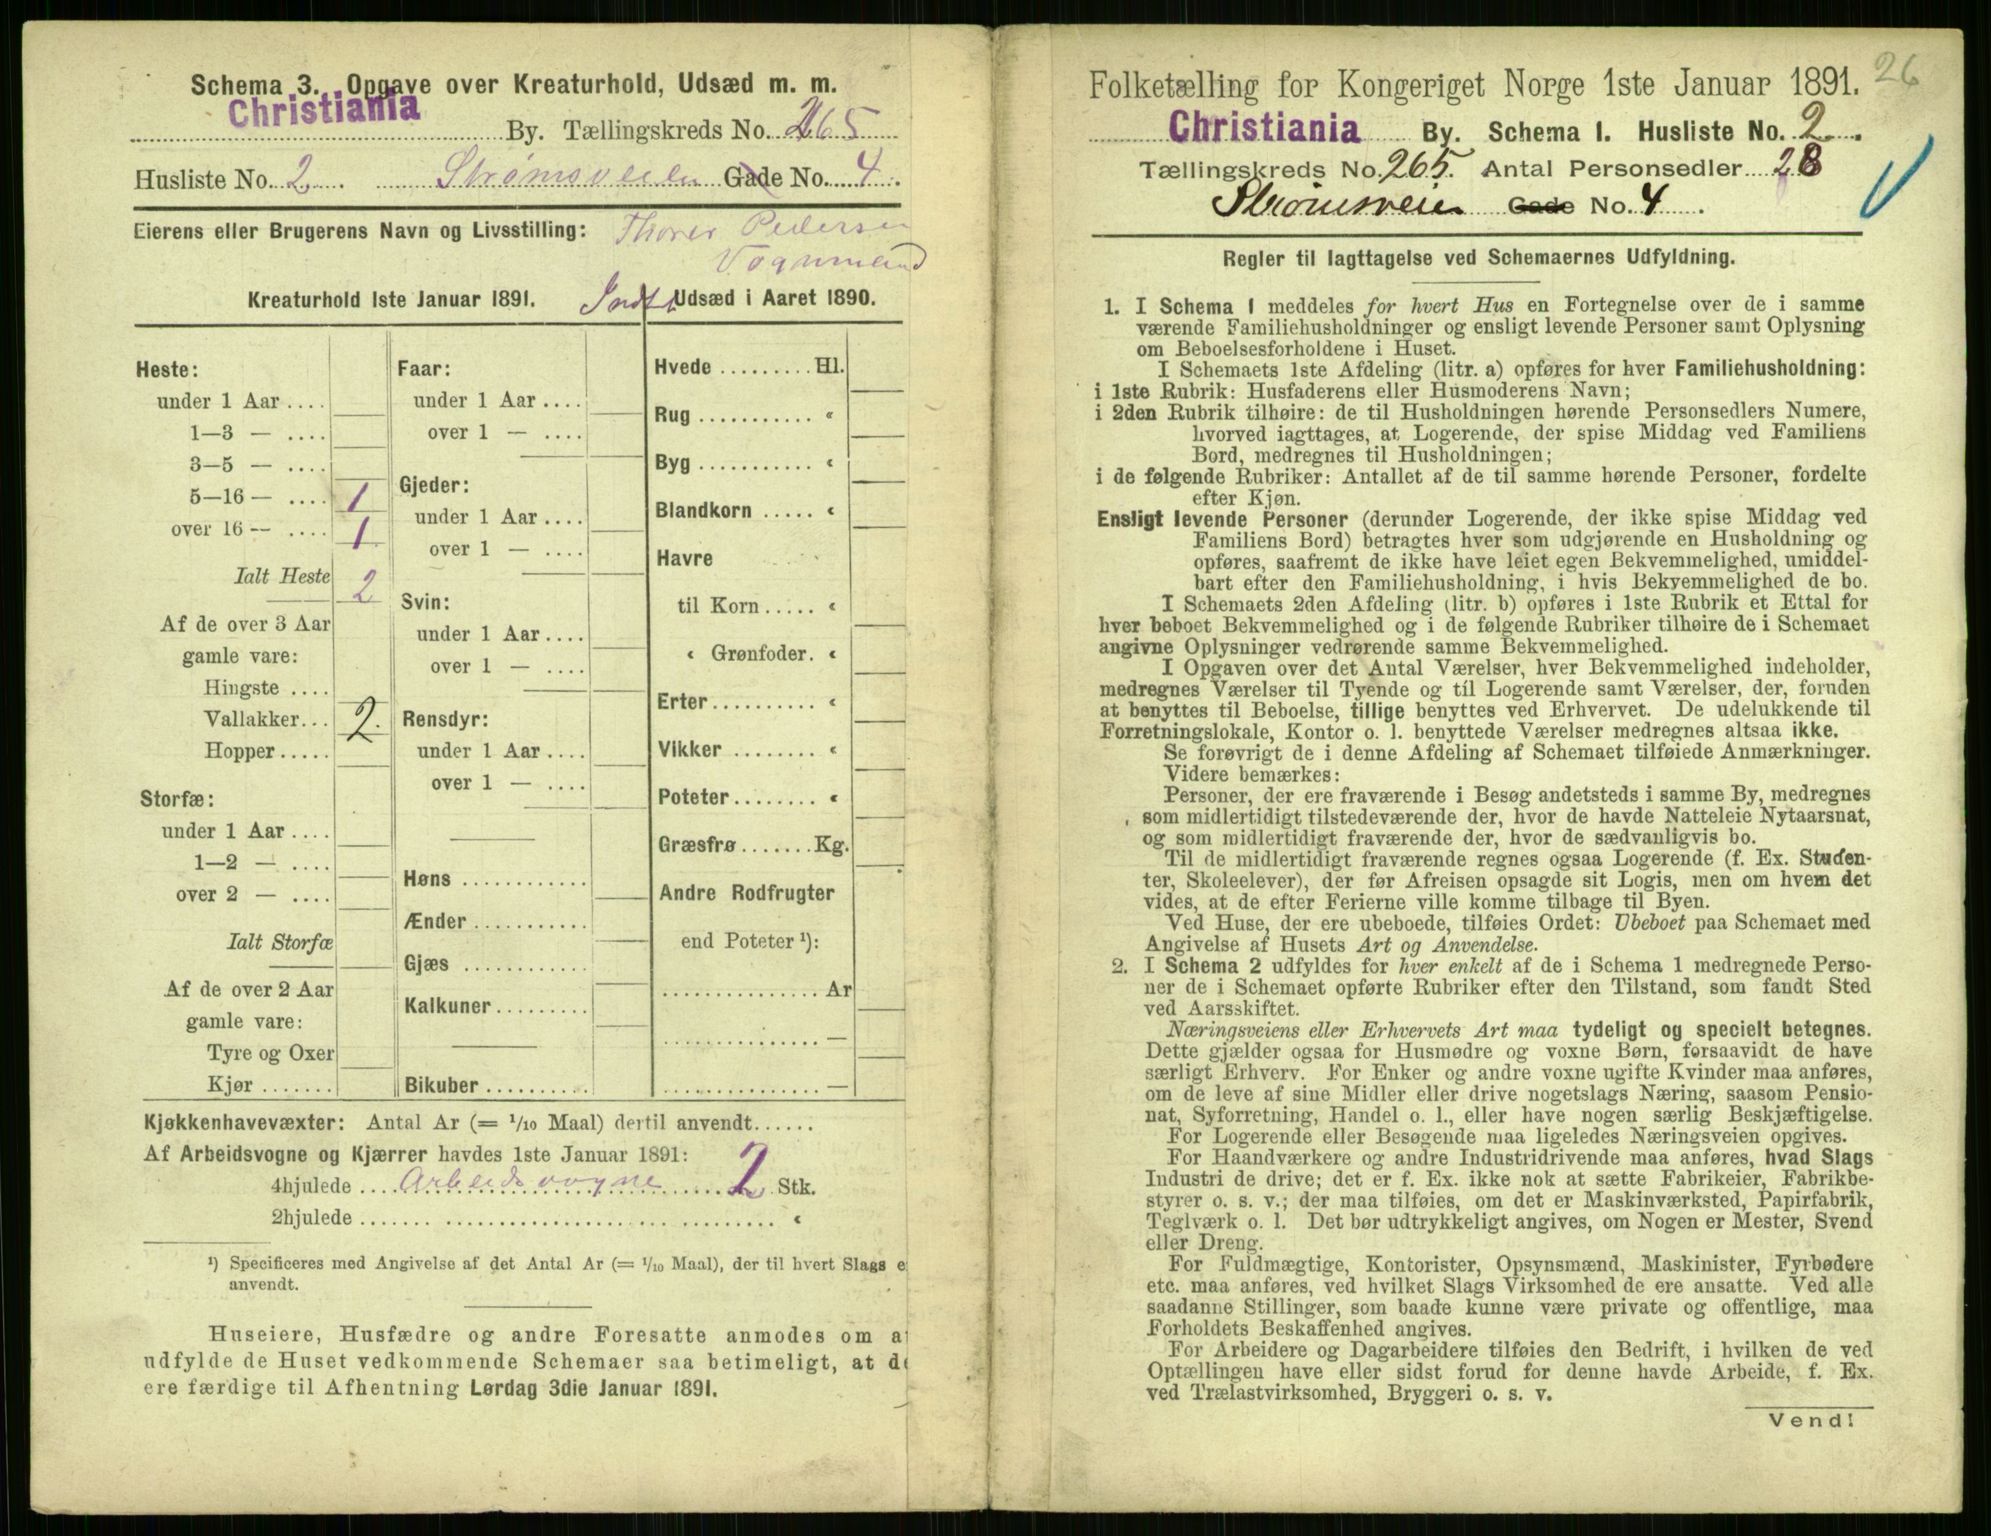 Schema 3. Opgave over Kreaturhold, Udsæd m. m.
Christiania By. Tællingskreds No. 265
Husliste No. 2. Strømsveien Gade No. 4.
Eierens eller Brugerens Navn og Livsstilling: Thorer Pedersen
Vognmand
Kreaturhold 1ste Januar 1891.
Udsæd i Aaret 1890.
Heste:
under 1 Aar ....
1—3 — ....
3—5 — ....
5—16 — .... 1
over 16 — .... 1.
Ialt Heste 2
Af de over 3 Aar
gamle vare:
Hingste ....
Vallakker... 2.
Hopper.....
Storfæ:
under 1 Aar ....
1—2 — ....
over 2 — ....
Ialt Storfæ
Af de over 2 Aar
gamle vare:
Tyre og Oxer
Kjør .......
Faar:
under 1 Aar ....
over 1 — ....
Gjeder:
under 1 Aar ....
over 1 — ....
Svin:
under 1 Aar ....
over 1 — ....
Rensdyr:
under 1 Aar ....
over 1 — ....
Høns ............
Ænder ...........
Gjæs ............
Kalkuner.........
Bikuber..........
Hvede .........Hl.
Rug ........... «
Byg ........... «
Blandkorn ..... «
Havre
til Korn..... «
« Grønfoder. «
Erter.......... «
Vikker ........ «
Poteter........ «
Græsfrø.......Kg.
Andre Rodfrugter
end Poteter ¹):
...............Ar
............... —
............... —
Kjøkkenhavevæxter: Antal Ar (= 1/10 Maal) dertil anvendt......
Af Arbeidsvogne og Kjærrer havdes 1ste Januar 1891:
4hjulede .... Arbeidsvogne ........ 2 Stk.
2hjulede ....... ........................ «
¹) Specificeres med Angivelse af det Antal Ar (= 1/10 Maal), der til hvert Slags e
anvendt.
Huseiere, Husfædre og andre Foresatte anmodes om a
udfylde de Huset vedkommende Schemaer saa betimeligt, at de
ere færdige til Afhentning Lørdag 3die Januar 1891.
26
Folketælling for Kongeriget Norge 1ste Januar 1891.
Christiania By. Schema 1. Husliste No. 2.
Tællingskreds No. 265. Antal Personsedler 28
Strømsveien Gade No. 4.
Regler til Iagttagelse ved Schemaernes Udfyldning.
1. I Schema 1 meddeles for hvert Hus en Fortegnelse over de i samme
værende Familiehusholdninger og ensligt levende Personer samt Oplysning
om Beboelsesforholdene i Huset.
I Schemaets 1ste Afdeling (litr. a) opføres for hver Familiehusholdning:
i 1ste Rubrik: Husfaderens eller Husmoderens Navn;
i 2den Rubrik tilhøire: de til Husholdningen hørende Personsedlers Numere,
hvorved iagttages, at Logerende, der spise Middag ved Familiens
Bord, medregnes til Husholdningen;
i de følgende Rubriker: Antallet af de til samme hørende Personer, fordelte
efter Kjøn.
Ensligt levende Personer (derunder Logerende, der ikke spise Middag ved
Familiens Bord) betragtes hver som udgjørende en Husholdning og
opføres, saafremt de ikke have leiet egen Bekvemmelighed, umiddel-
bart efter den Familiehusholdning, i hvis Bekvemmelighed de bo.
I Schemaets 2den Afdeling (litr. b) opføres i 1ste Rubrik et Ettal for
hver beboet Bekvemmelighed og i de følgende Rubriker tilhøire de i Schemaet
angivne Oplysninger vedrørende samme Bekvemmelighed.
I Opgaven over det Antal Værelser, hver Bekvemmelighed indeholder,
medregnes Værelser til Tyende og til Logerende samt Værelser, der, foruden
at benyttes til Beboelse, tillige benyttes ved Erhvervet. De udelukkende til
Forretningslokale, Kontor o. l. benyttede Værelser medregnes altsaa ikke.
Se forøvrigt de i denne Afdeling af Schemaet tilføiede Anmærkninger.
Videre bemærkes:
Personer, der ere fraværende i Besøg andetsteds i samme By, medregnes
som midlertidigt tilstedeværende der, hvor de havde Natteleie Nytaarsnat,
og som midlertidigt fraværende der, hvor de sædvanligvis bo.
Til de midlertidigt fraværende regnes ogsaa Logerende (f. Ex. Studen-
ter, Skoleelever), der før Afreisen opsagde sit Logis, men om hvem det
vides, at de efter Ferierne ville komme tilbage til Byen.
Ved Huse, der ere ubeboede, tilføies Ordet: Ubeboet paa Schemaet med
Angivelse af Husets Art og Anvendelse.
2. I Schema 2 udfyldes for hver enkelt af de i Schema 1 medregnede Perso-
ner de i Schemaet opførte Rubriker efter den Tilstand, som fandt Sted
ved Aarsskiftet.
Næringsveiens eller Erhvervets Art maa tydeligt og specielt betegnes.
Dette gjælder ogsaa for Husmødre og voxne Børn, forsaavidt de have
særligt Erhverv. For Enker og andre voxne ugifte Kvinder maa anføres,
om de leve af sine Midler eller drive nogetslags Næring, saasom Pensio-
nat, Syforretning, Handel o. l., eller have nogen særlig Beskjæftigelse.
For Logerende eller Besøgende maa ligeledes Næringsveien opgives.
For Haandværkere og andre Industridrivende maa anføres, hvad Slags
Industri de drive; det er f. Ex. ikke nok at sætte Fabrikeier, Fabrikbe-
styrer o. s. v.; der maa tilføies, om det er Maskinværksted, Papirfabrik,
Teglværk o. l. Det bør udtrykkeligt angives, om Nogen er Mester, Svend
eller Dreng.
For Fuldmægtige, Kontorister, Opsynsmænd, Maskinister, Fyrbødere
etc. maa anføres, ved hvilket Slags Virksomhed de ere ansatte. Ved alle
saadanne Stillinger, som baade kunne være private og offentlige, maa
Forholdets Beskaffenhed angives.
For Arbeidere og Dagarbeidere tilføies den Bedrift, i hvilken de ved
Optællingen have eller sidst forud for denne havde Arbeide, f. Ex.
ved Trælastvirksomhed, Bryggeri o. s. v.
Vend!